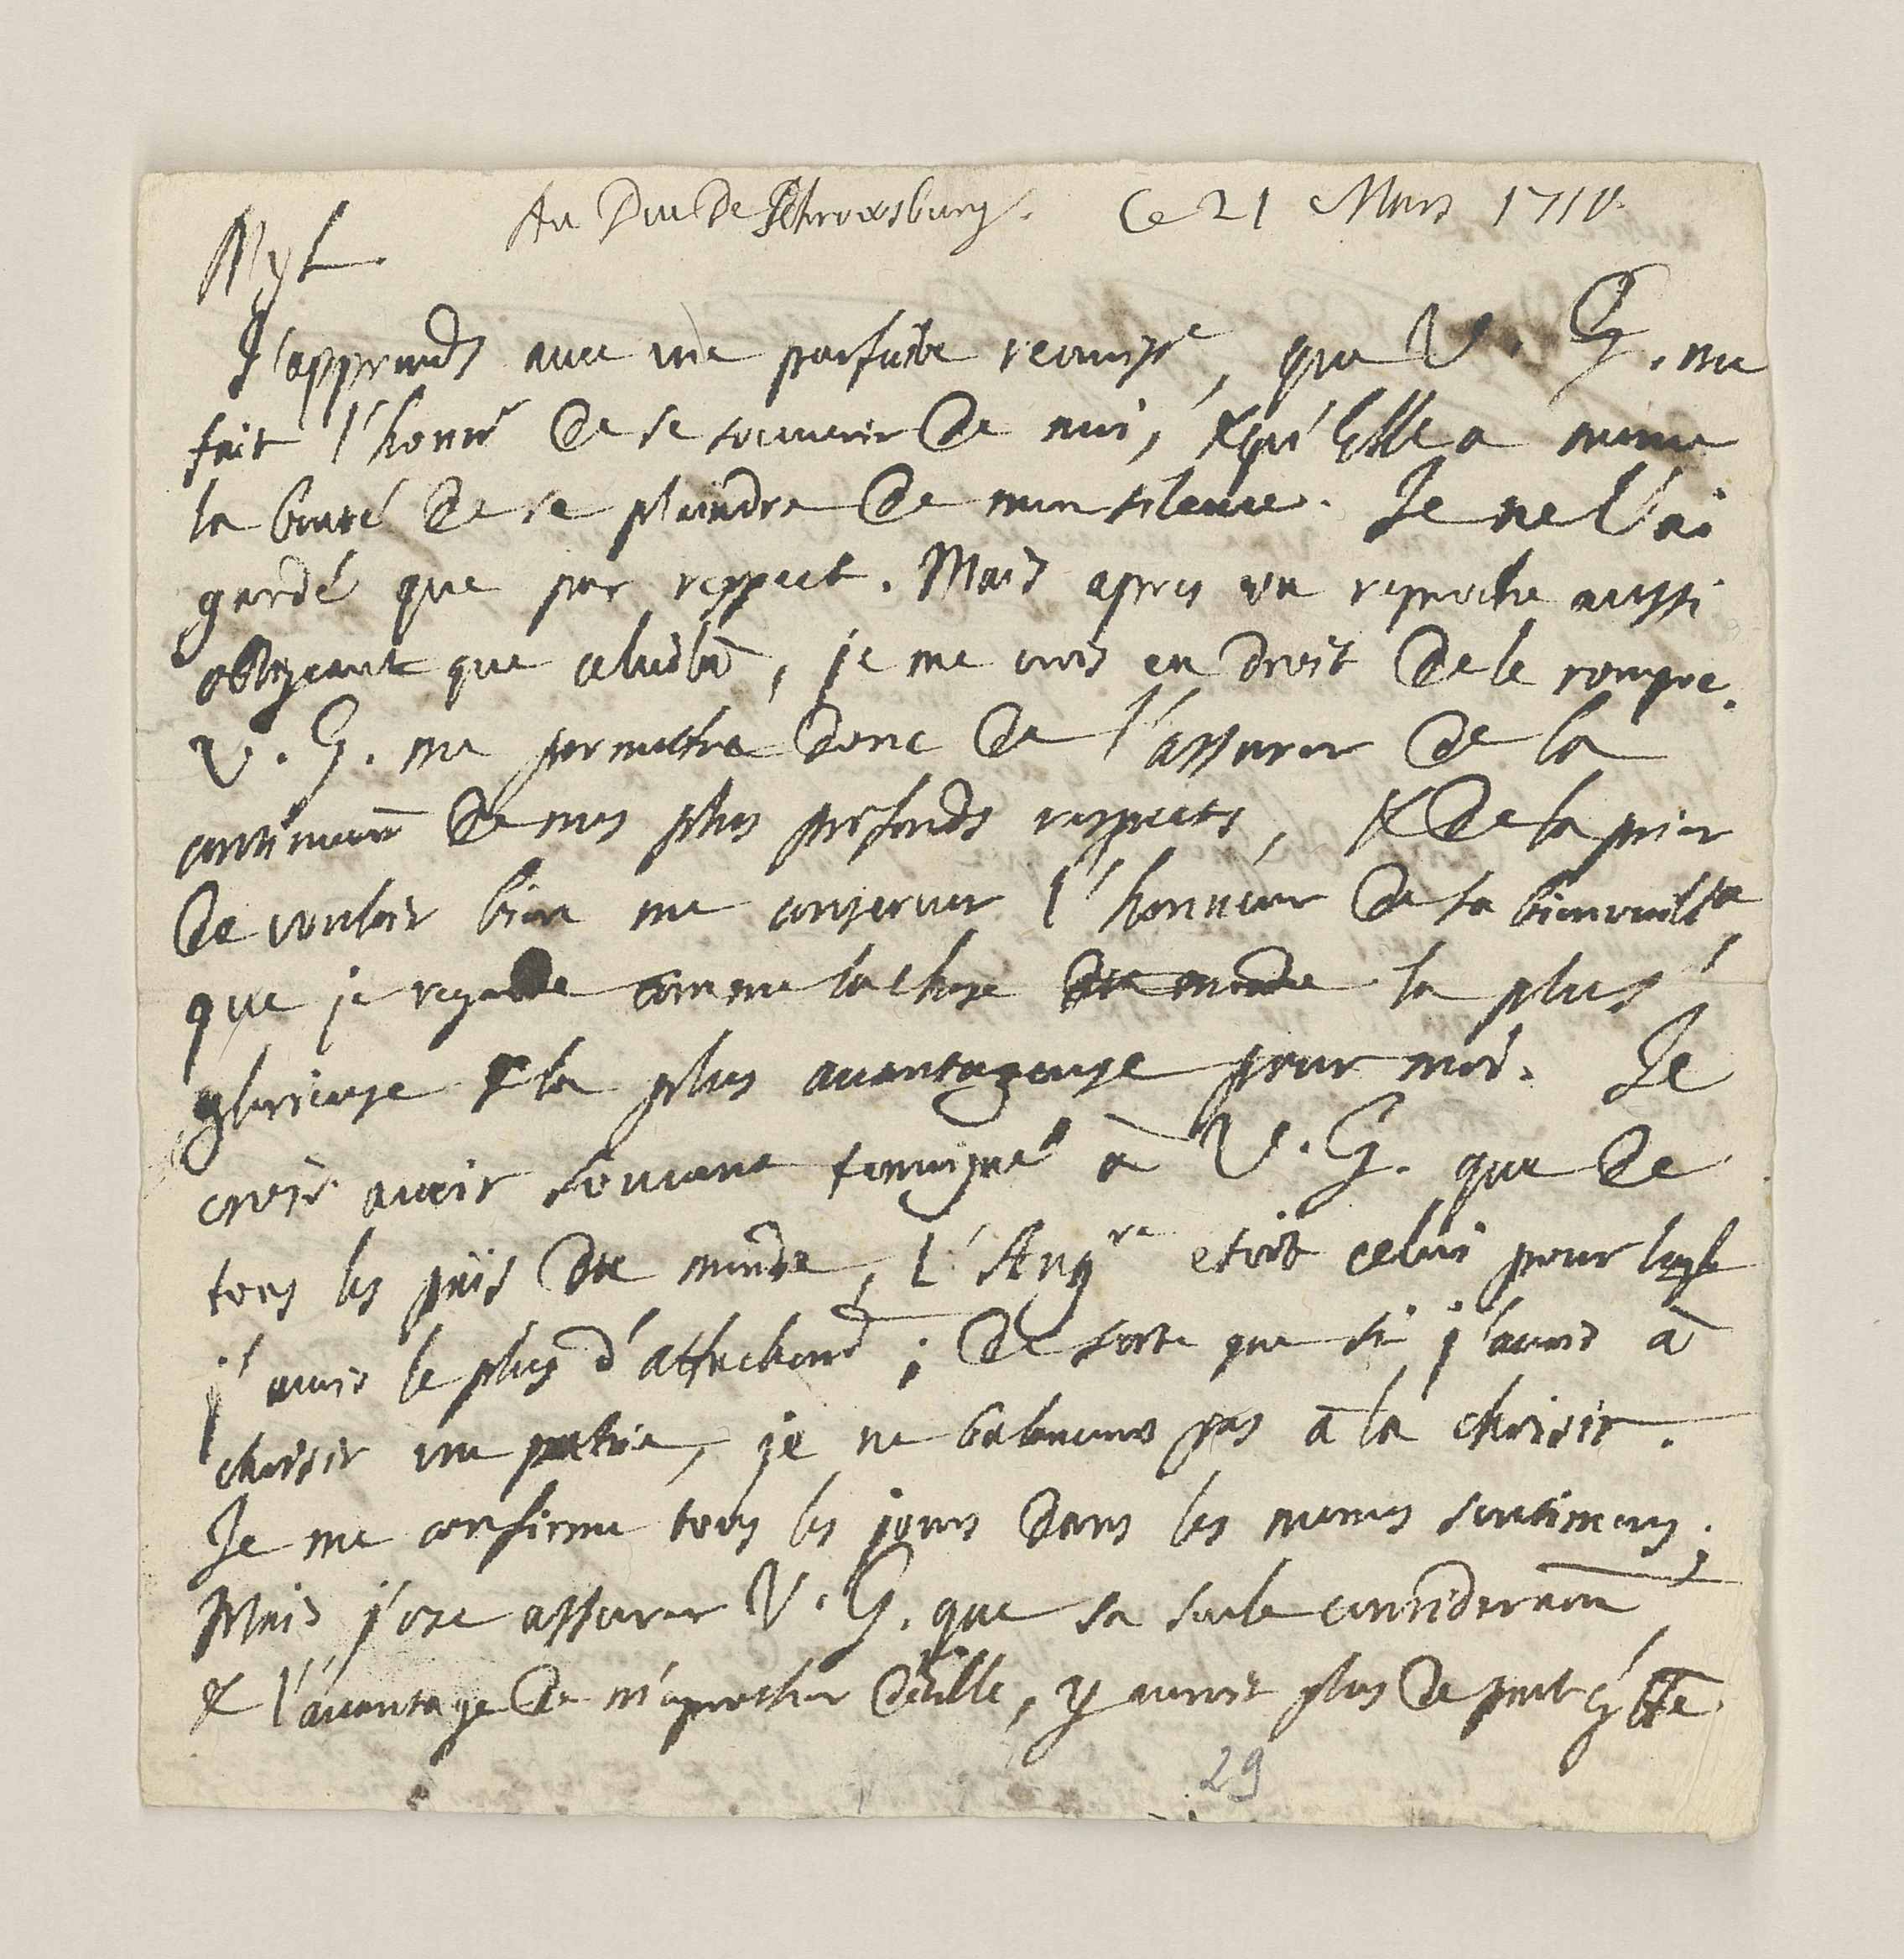 Au Duc De Schrowsburg. Ce 21 Mars 1710.
Myl.
J'apprends avec une parfaite reconisse, que V. G. me
fait l'honnr de se souvenir de moi, & qu'Elle a meme
la bonté de se plaindre de mon silence. Je ne l'ai
gardé que par respect. Mais apres un reproche aussi
obligeant que celuila, je me crois en droit de le rompre.
V. G. me permettra donc de l'assurer de la
de mes plus profonds respects, & de la prier
de vouloir bien me conserver l'honneur de sa bienveillce,
que je regarde comme la chose du monde la plus
glorieuse & la plus avantageuse pour moi. Je
crois avoir souvent temoigné à V. G. que de
tous les païs du monde, l'Angre etoit celui pour leql
j'avois le plus d'attachent; de sorte que si j'avois à
choisir une patrie, je ne balancerois pas à la choisir.
Je me confirme tous les jours dans les memes sentimens;
Mais j'ose assurer V. G. que sa seule consideraon
& l'avantage de m'aprocher d'Elle, y auroit plus de part
29